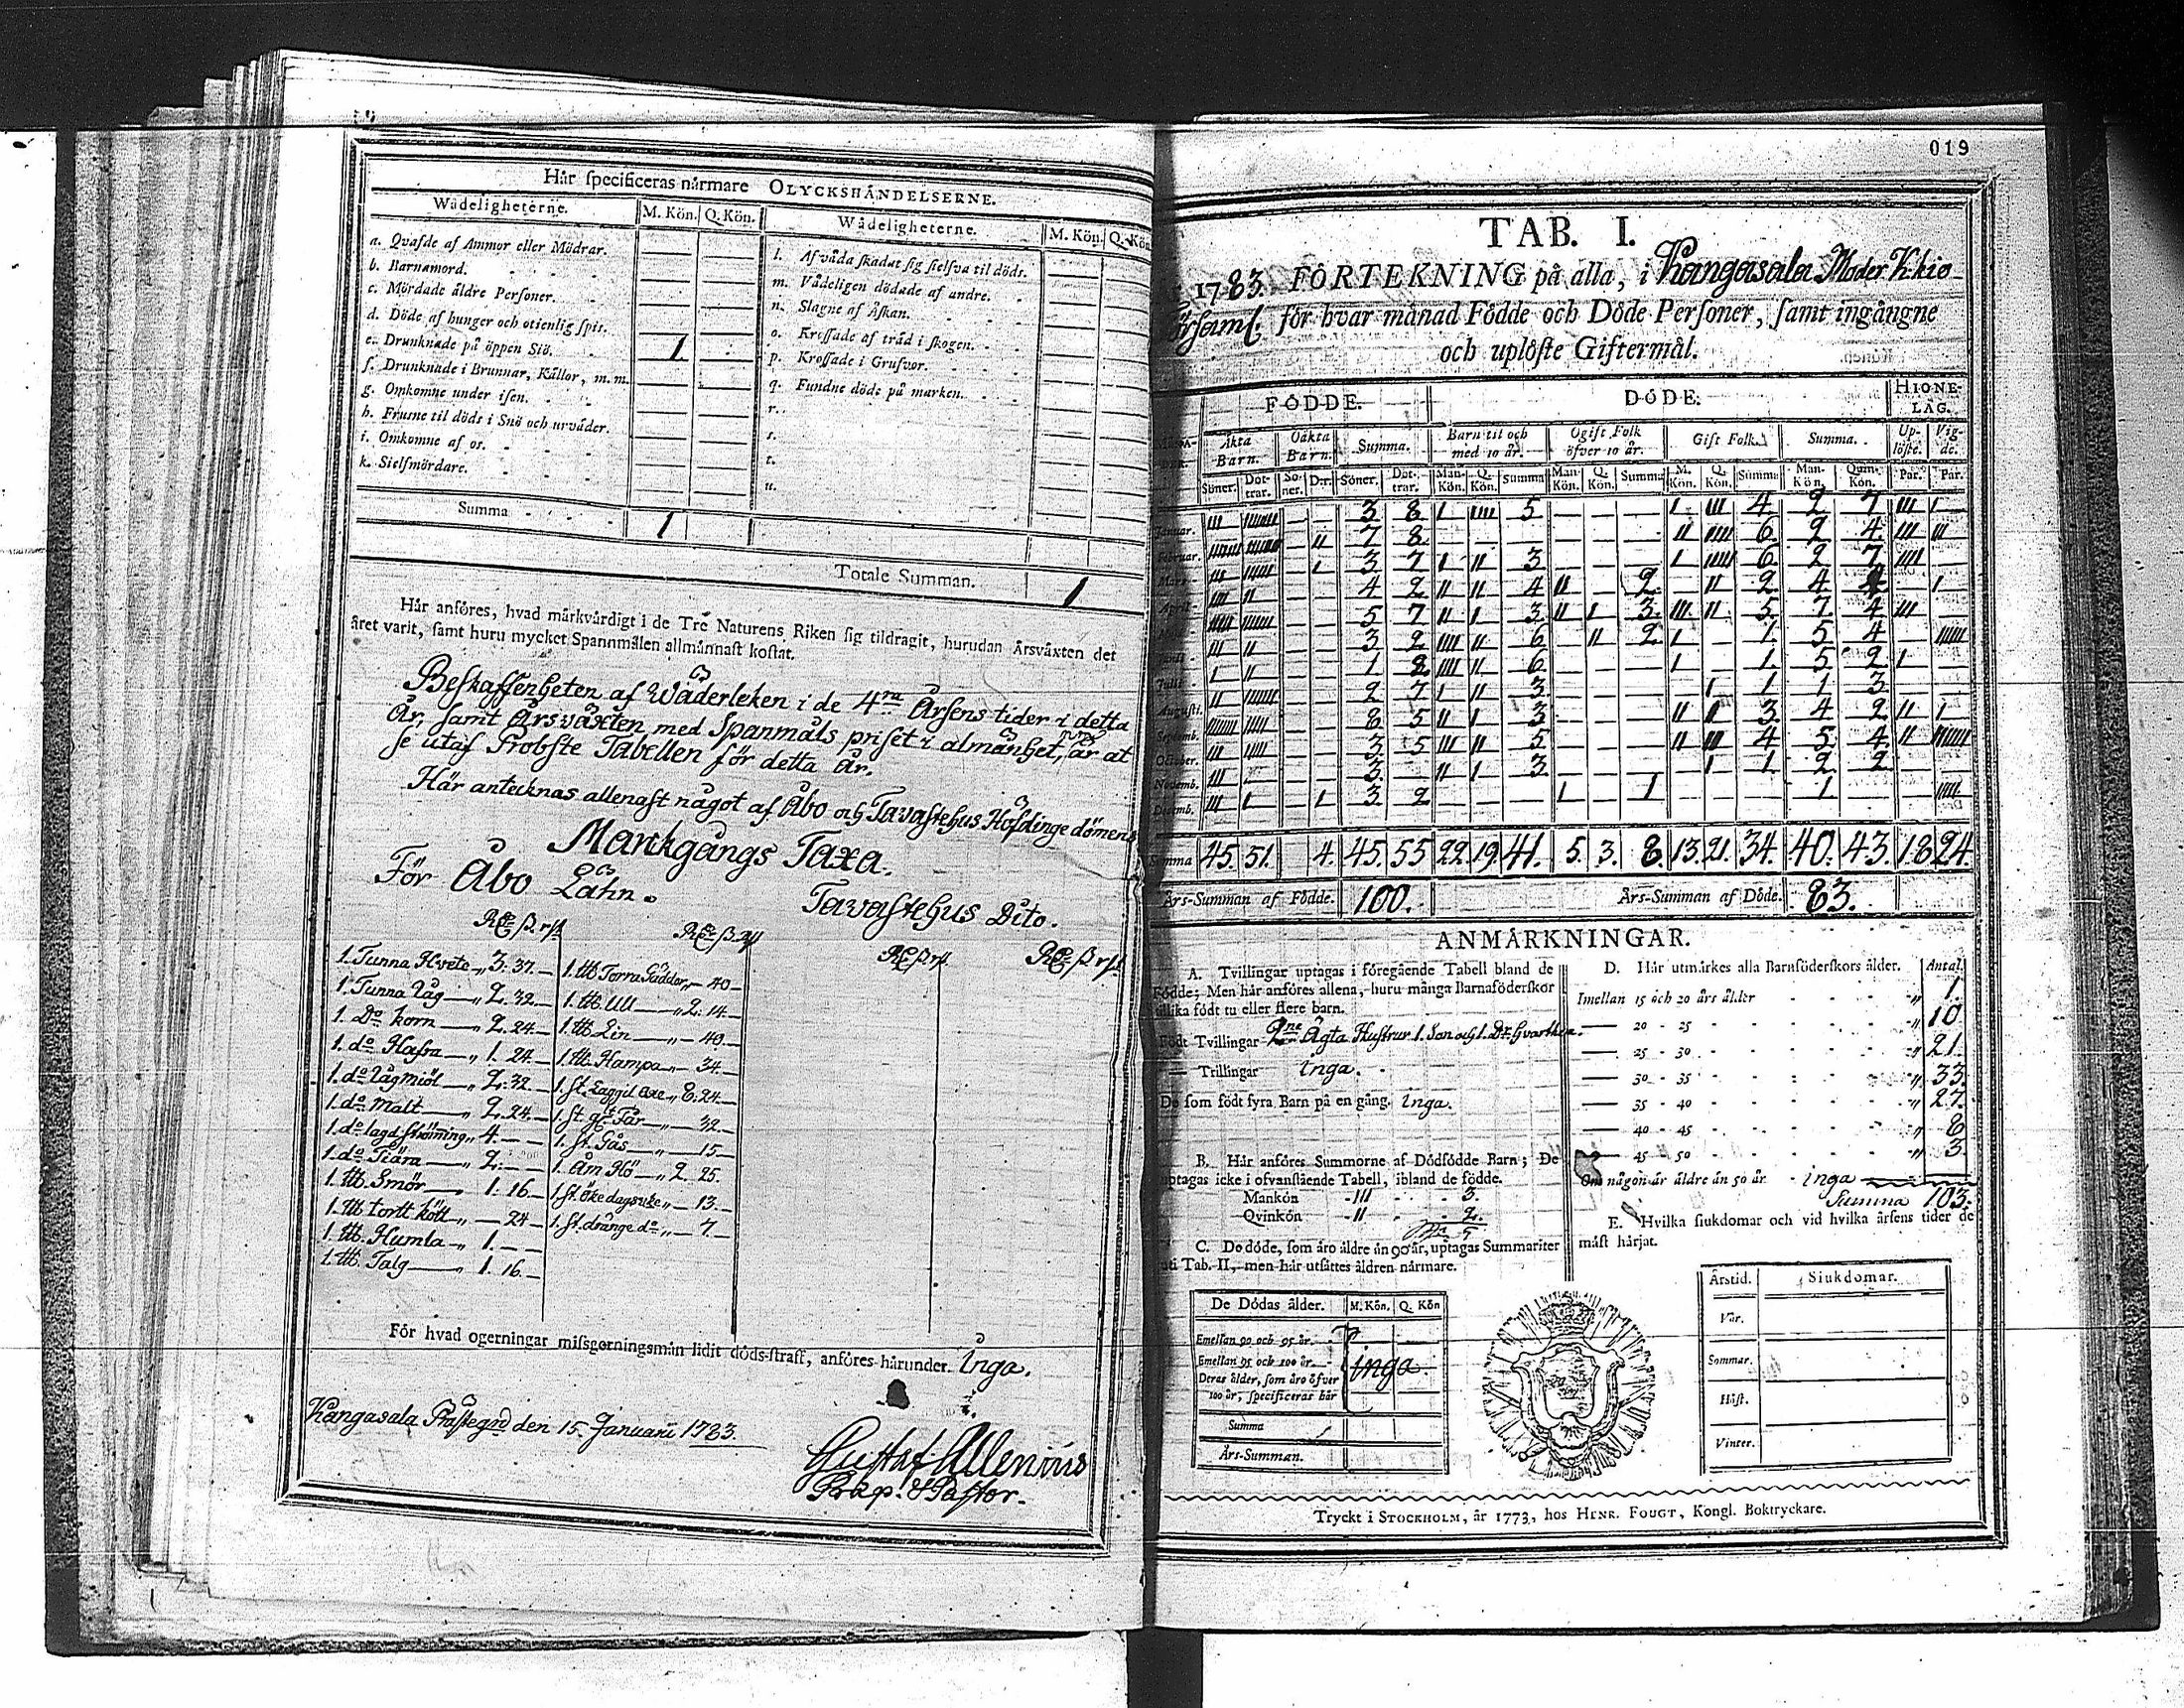 Hår specificeras nårmare OLYCKSHÅNDELSERNE.
Wådeligheterne. M. Kön. Q. Kön.
a. Qvafde af Ammor eller Mödrar.
b. Barnamord.
c. Mördade åldre Personer.
d. Döde af hunger och otienlig spis.
e. Drunknade på öppen Siö. 1
f. Drunknade i Brunnar, Källor, m. m.
g. Omkomne under isen.
h. Frusne til döds i Snö och urvåder.
i. Omkomne af os.
k. Sielfmördare.
Summa 1
Wådeligheterne. M. Kön. Q. Kön
l. Af våda skadat sig sielfva til döds.
m. Vådeligen dödade af andre.
n. Slagne af Åskan.
o. Krossade af tråd i skogen.
p. Krossade i Grufvor.
q. Fundne döde på marken.
r.
s.
t.
u.
Totale Summan. 1
Hår anföres, hvad mårkvårdigt i de Tre Naturens Riken sig tildragit, hurudan Årsvåxten det
året varit, samt huru mycket Spannmålen allmånnast kostat.
Beskaffenheten af Wäderleken i de 4ra Årsens tider i detta
År, samt Årsväxten med Spanmåls priset i almänhet, är at
se utaf Probste Tabellen för detta år.
Här antecknas allenast något af Åbo och Tavastehus Höfdinge dömens
Markgångs Taxa.
För Åbo Lähn.
Tavastehus Dito.
1. Tunna Hvete 3. 37.
1. Tunna Råg 2. 32.
1. Do korn 2. 24.
1. do Hafra 1. 24.
1. do Rågmiöl 2. 32.
1. do Malt 2. 24.
1. do lagd strömming 4.
1. do Tiära 2.
1. ttb. Smör 1. 16.
1. ttb torrt kött 24
1. ttb. Humla 1.
1. ttb. Talg 1. 16.
1. ttb Torra Gäddor 40
1. ttb. Ull 2. 14.
1. ttb Lin 40.
1. ttb. Hampa 34.
1. st. Laggil oxe 8. 24.
1. st. Får 32
1. st. Gås 15
1. Åm Hö 2. 25.
1. st. öke dagsvke 13.
1. st. dränge do 7.
För hvad ogerningar missgerningsmån lidit döds-straff, anföres hårunder. Inga.
Kangasala Prästegrd den 15. Januarii 1783.
Gustaf Allenius
Præp. & Pastor.
019
TAB. I.
1783. FÖRTEKNING på alla, i Kangasala Moder K:kio
Församl. för hvar månad Födde och Döde Personer, samt ingångne
och uplöste Giftermål.
FÖDDE. DÖDE. HIONE-LAG.
Åkta Barn. Oåkta Barn. Summa. Barn til och med 10 år. Ogift Folk öfver 10 år. Gift Folk. Summa. Up-löste. Vig-de.
Söner. Dot-trar. So-ner. D:r. Söner. Dot-trar. Man-Kön. Q. Kön. Summa Man-Kön. Q. Kön. Summa M. Kön. Q. Kön. Summa Man-Kön. Qvin-Kön. Par. Par.
Januar. III IIIIIIII 3 8 I IIII 5 I III 4 2 7 III I
Februar. IIIIIII II 7 8 II IIII 6 2 4 III III
Mars III I 3 7 I II 3 I IIIII 6 2 7 IIII
April IIII II 4 2 II II 4 II 2 II 2 4 4 I
5 7 II I 3 II I 3 III II 5 7 4 III
III II 3 2 IIII II 6 II 2 I 1 5 4 IIIII
Julii I II 1 2 IIII II 6 I 1 5 2 I
Augusti. II IIIIIII 2 7 I II 3 I 1 1 3
Septemb. IIIIIIII IIIII 8 5 II I 3 II II 3 4 2 II I
October. III IIIII 3 5 III II 5 II III 4 5 4 II
Novemb. III 3 II I 3 I 1 2 2
Decemb. III I I 3 2 I 1 1
Summa 45. 51. 4. 45. 55 22. 19. 41. 5. 3. 8. 13. 21. 34. 40. 43. 18 24.
Års-Summan af Födde. 100. Års-Summan af Döde. 83.
ANMÅRKNINGAR.
A. Tvillingar uptagas i föregående Tabell bland de
Födde; Men hår anföres allena, huru många Barnaföderskor
tillika födt tu eller flere barn.
Födt Tvillingar 2ne Ägta Hustrur 1. Son och 1. Dr hvarthera.
— Trillingar Inga.
De som födt fyra Barn på en gång. Inga.
B. Hår anföres Summorne af Dödfödde Barn; De
uptagas icke i ofvanstående Tabell, ibland de födde.
Mankön III 3.
Qvinkön II 2.
5
C. De döde, som åro åldre ån 90 år, uptagas Summariter
uti Tab. II, men hår utsåttes åldren nårmare.
De Dödas ålder. M. Kön. Q. Kön
Emellan 90 och 95 år.
Emellan 95 och 100 år.
Deras ålder, som åro öfver
100 år, specificeras hår
inga
Summa
Års-Summan.
D. Hår utmårkes alla Barnföderskors ålder. Antal.
Imellan 15 och 20 års ålder 1.
— 20 - 25 10
— 25 - 30 21.
— 30 - 35 33.
— 35 - 40 27.
— 40 - 45 8
— 45 - 50 3.
Om någon år åldre ån 50 år inga
Summa 103.
E. Hvilka siukdomar och vid hvilka årsens tider de
måst hårjat.
Årstid. Siukdomar.
Vår.
Sommar.
Höst.
Vinter.
Tryckt i STOCKHOLM, år 1773, hos HENR. FOUGT, Kongl. Boktryckare.